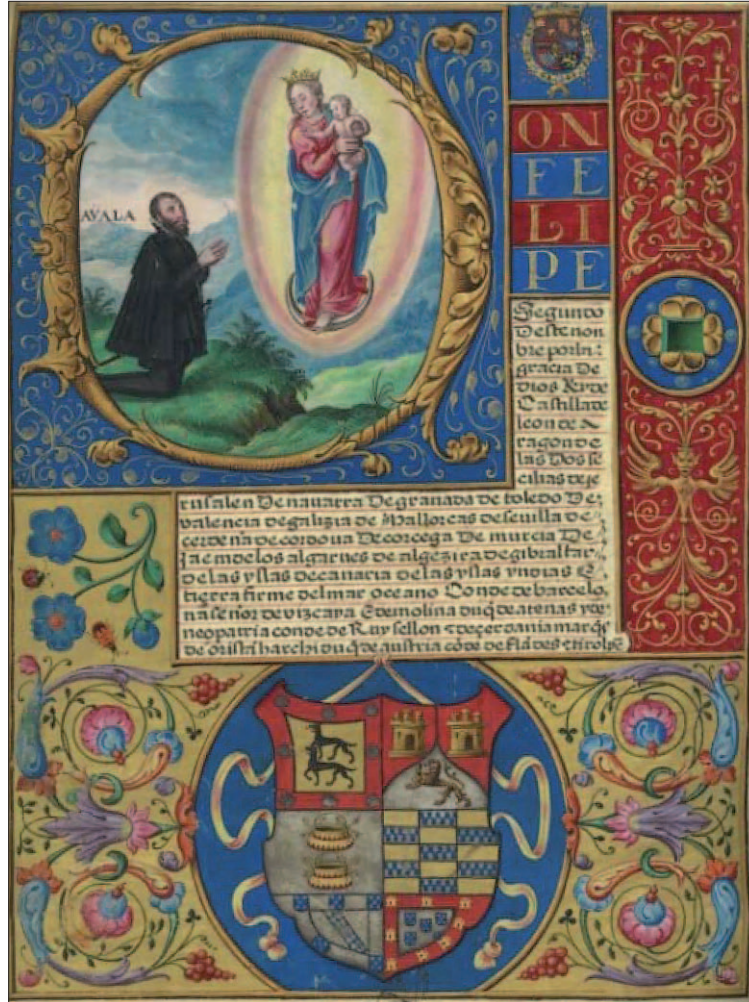 AYALA
ON
FE
LI
PE
Segundo
Deste nom
bre por la
gracia De
Dios Rey de
Castilla de
leon de A
ragon de
las Dos se
cilias de je
rusalen De nauarra De granada de toledo De
valencia de galizia de Mallorcas de seuilla de
cerdeña de cordoua De corcega De murcia De
jaem de los algarues de algezira de gibraltar
de las yslas de canaria de las yslas yndias E
tierra firme del mar oceano Conde de barcelo
na señor de vizcaya E de molina duq̃ de atenas y de
neopatria conde de Ruysellon E de çerdania marq̃s
de oristã
duq̃ de austria cõde de flãdes E tirol